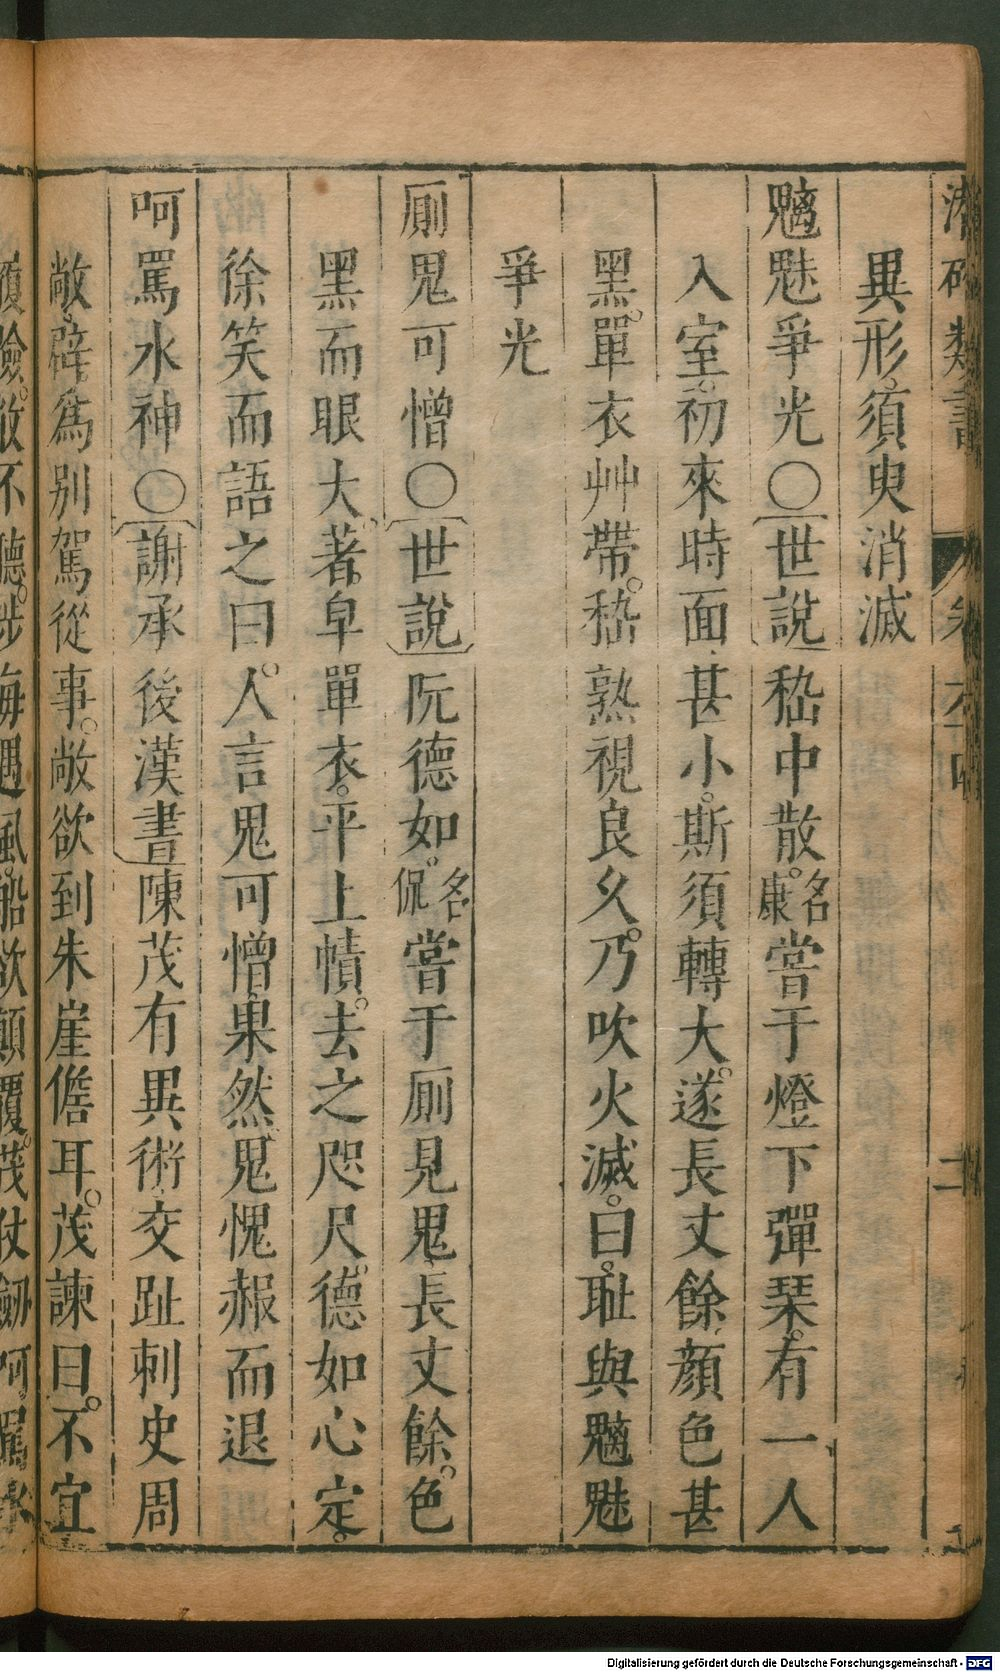 潛確類書 卷六十四 二
異形須臾消滅
魑魅爭光○世說嵇中散名康嘗于燈下彈琹有一人
入室初來時面甚小斯須轉大遂長丈餘顔色甚
黑單衣艸帶嵇熟視良久乃吹火滅曰恥與魑魅
爭光
厠鬼可憎○世說阮德如名侃嘗于厠見鬼長丈餘色
黑而眼大著皁單衣平上幘去之咫尺德如心定
徐笑而語之曰人言鬼可憎果然鬼愧赧而退
呵罵水神○謝承後漢書陳茂有異術交趾刺史周
敞辟爲別駕從事敞欲到朱崖儋耳茂諫曰不宜
履險敞不聽涉海遇風船欲顛覆茂仗劒呵罵水
Digitalisierung gefördert durch die Deutsche Forschungsgemeinschaft - DFG